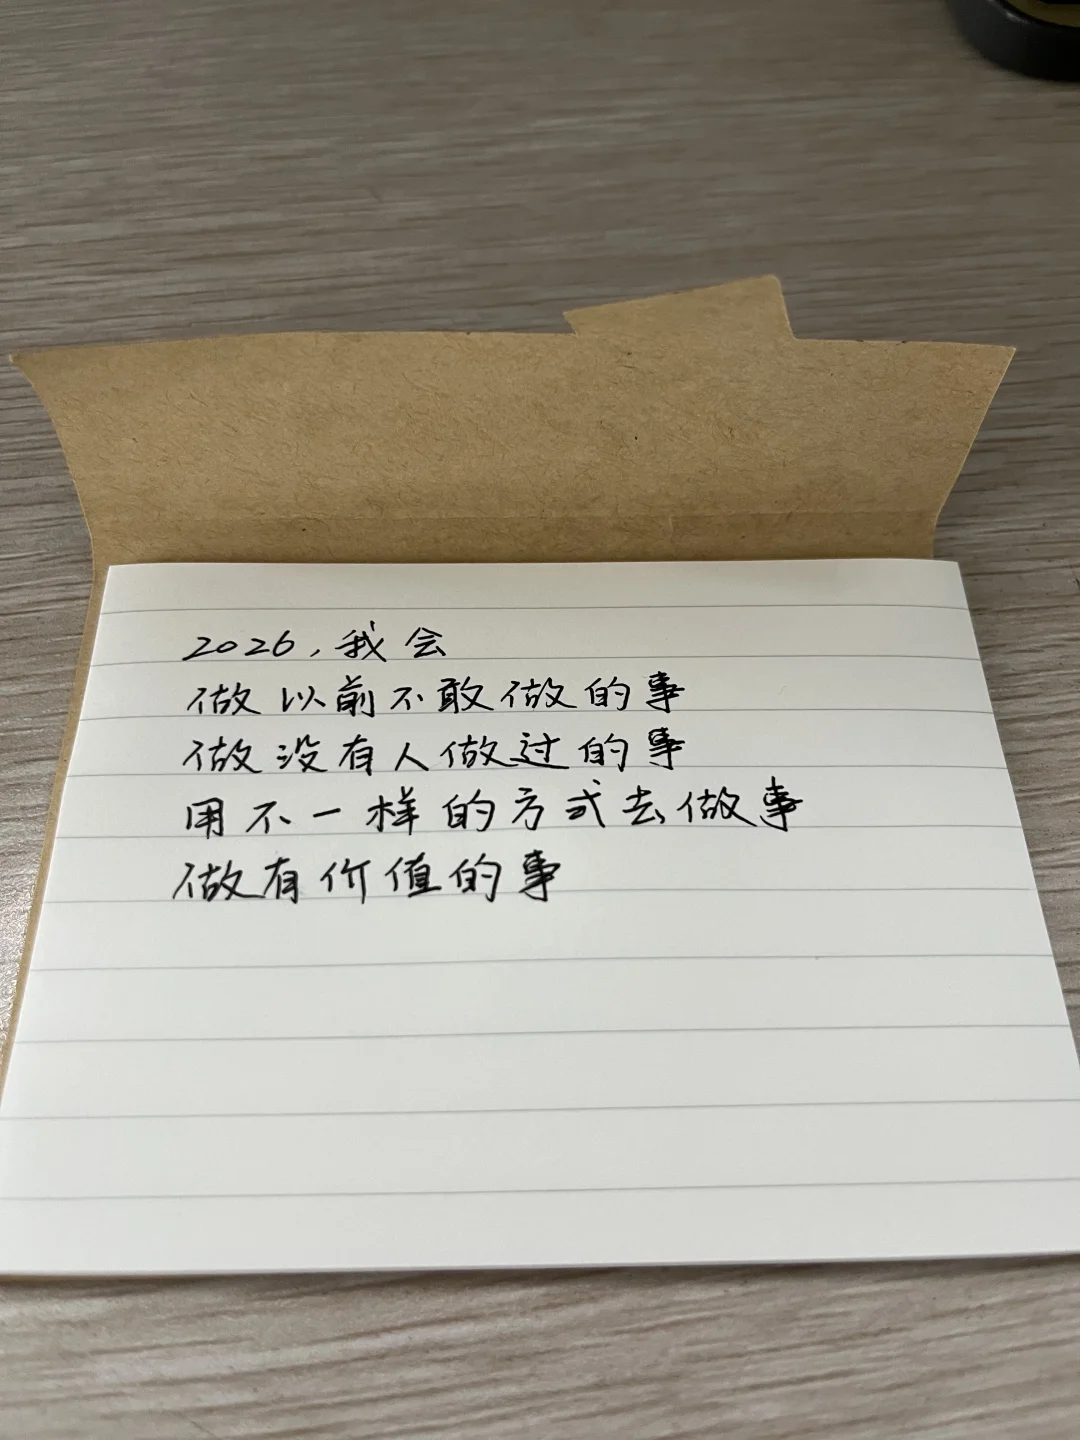 2026，我会
做以前不敢做的事
做没有人做过的事
用不一样的方式去做事
做有价值的事